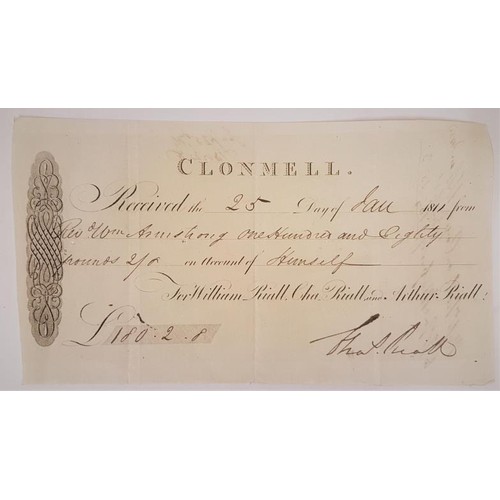 CLONMELL.
Received the 25 Day of Jan 1811 from
Revd Wm Armstrong One Hundred and Eighty
pounds 2/8 on Account of Himself
For William Riall, Cha. Riall and Arthur Riall:
£180.2.8
Chas. Riall